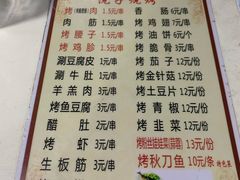 烤肉 1.5元/串
肉筋 1.5元/串
烤腰子 1.5元/串
烤鸡珍 1.5元/串
涮豆腐皮 1元/串
涮牛肚 1元/串
羊羔肉 3元/串
烤鱼豆腐 3元/串
醋肚 2元/串
烤虾 3元/串
生板筋 3元/串
香肠 6元/串
烤鸡翅 5元/串
烤油饼 6元/个
烤脆骨 3元/串
烤茄子 12元/份
烤金针菇 12元/份
烤土豆片 12元/份
烤青椒 12元/份
烤韭菜 12元/份
烤粉丝娃娃菜(蒜蓉) 13元/份
烤秋刀鱼 10元/条